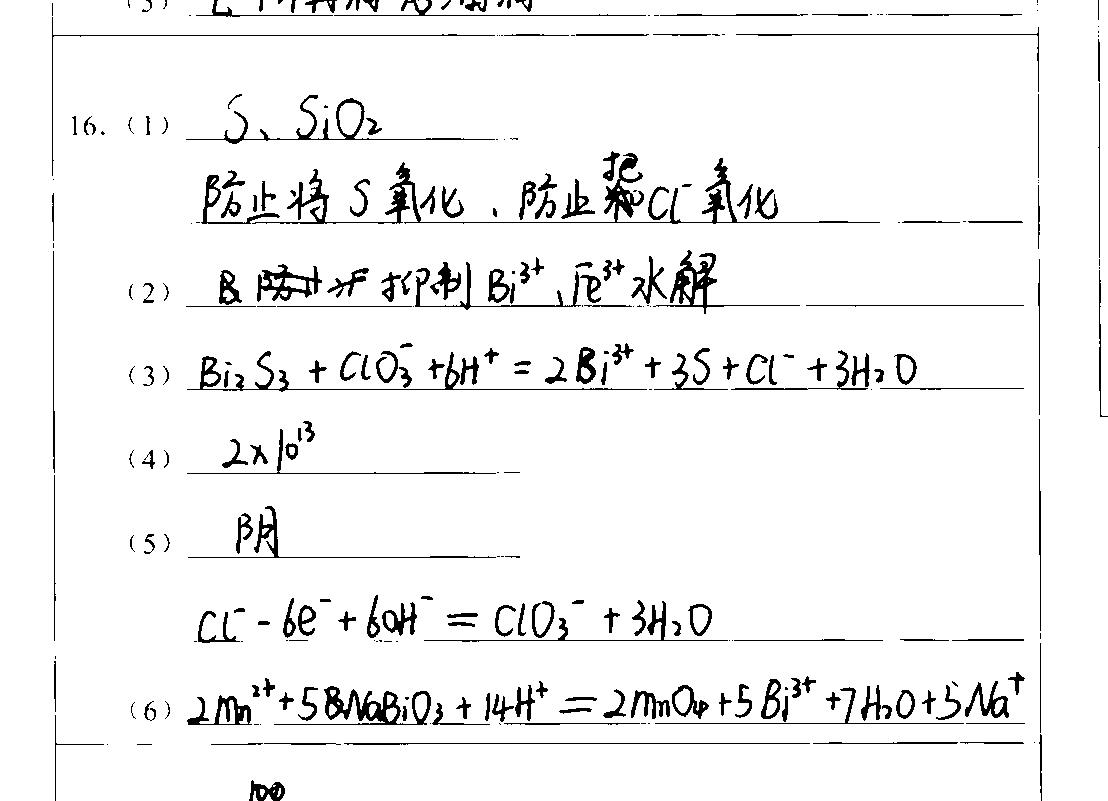 (3)
16. (1) S、SiO₂
防止将 S 氧化、防止把Cl⁻氧化
(2) 抑制 Bi³⁺、Fe³⁺水解
(3) Bi₂S₃ + ClO₃⁻ + 6H⁺ = 2Bi³⁺ + 3S + Cl⁻ + 3H₂O
(4) 2×10¹³
(5) 阴
Cl⁻ - 6e⁻ + 6OH⁻ = ClO₃⁻ + 3H₂O
(6) 2Mn²⁺ + 5NaBiO₃ + 14H⁺ = 2MnO₄ + 5Bi³⁺ + 7H₂O + 5Na⁺
100